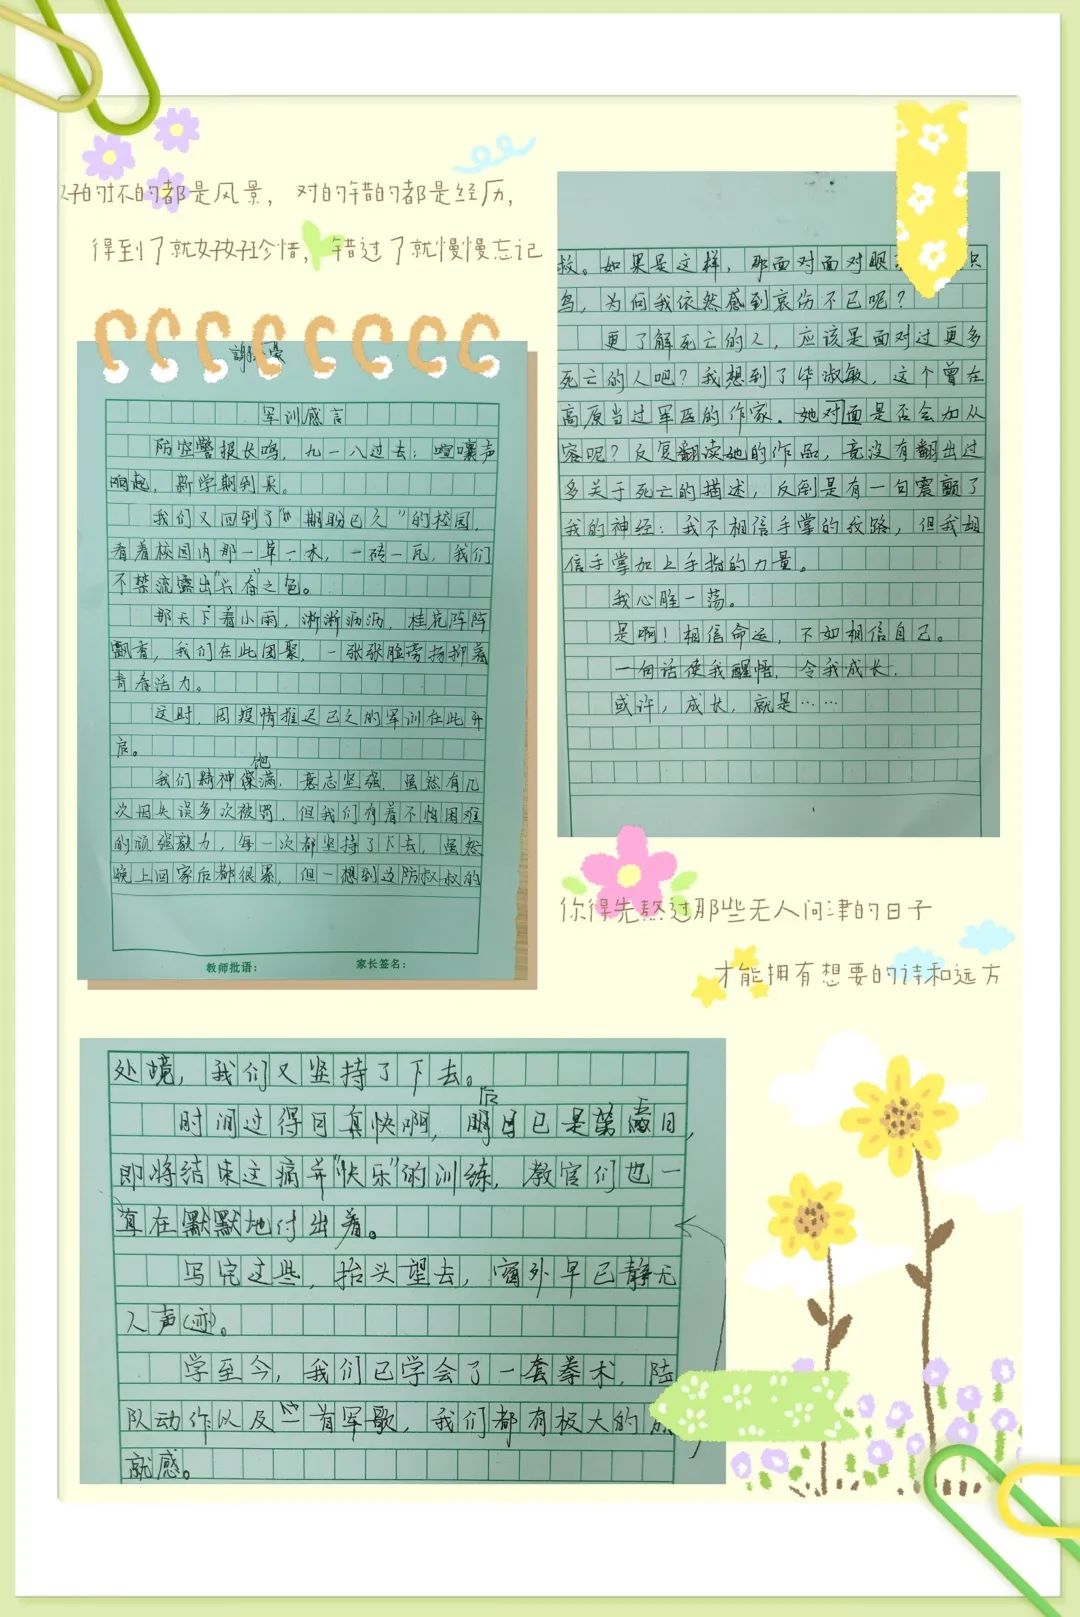 好的坏的都是风景， 对的错的都是经历，
得到了就好好珍惜， 错过了就慢慢忘记
军训感言
防空警报长鸣，九一八过去；喧嚷声
响起，新学期到来。
我们又回到了“期盼已久”的校园，
看着校园内那一草一木，一砖一瓦，我们
不禁流露出“兴奋”之色。
那天下着小雨，淅淅沥沥，桂花阵阵
飘香，我们在此团聚，一张张脸旁扬抑着
青春活力。
这时，因疫情推迟已久的军训在此开
启。
我们精神饱满，意志坚强，虽然有几
次因失误多次被罚，但我们有着不怕困难
的顽强毅力，每一次都坚持了下去，虽然
晚上回家后都很累，但一想到边防叔叔的
教师批语： 家长签名：
救。如果是这样，那面对面对眼 只
鸟，为何我依然感到哀伤不已呢？
更了解死亡的人，应该是面对过更多
死亡的人吧？我想到了毕淑敏，这个曾在
高原当过军医的作家。她对面是否会加从
容呢？反复翻读她的作品，竟没有翻出过
多关于死亡的描述，反倒是有一句震颤了
我的神经：我不相信手掌的纹路，但我相
信手掌加上手指的力量。
我心胜一荡。
是啊！相信命运，不如相信自己。
一句话使我醒悟，令我成长.
或许，成长，就是……
你得先熬过那些无人问津的日子
才能拥有想要的诗和远方
处境，我们又坚持了下去。
时间过得可真快啊，后日已是 日，
即将结束这痛并“快乐”的训练，教官们也一
直在默默地付出着。
写完这些，抬头望去，窗外早已静无
人声（迹）。
学至今，我们已学会了一套拳术，陆
队动作以及一首军歌，我们都有极大的
就感。